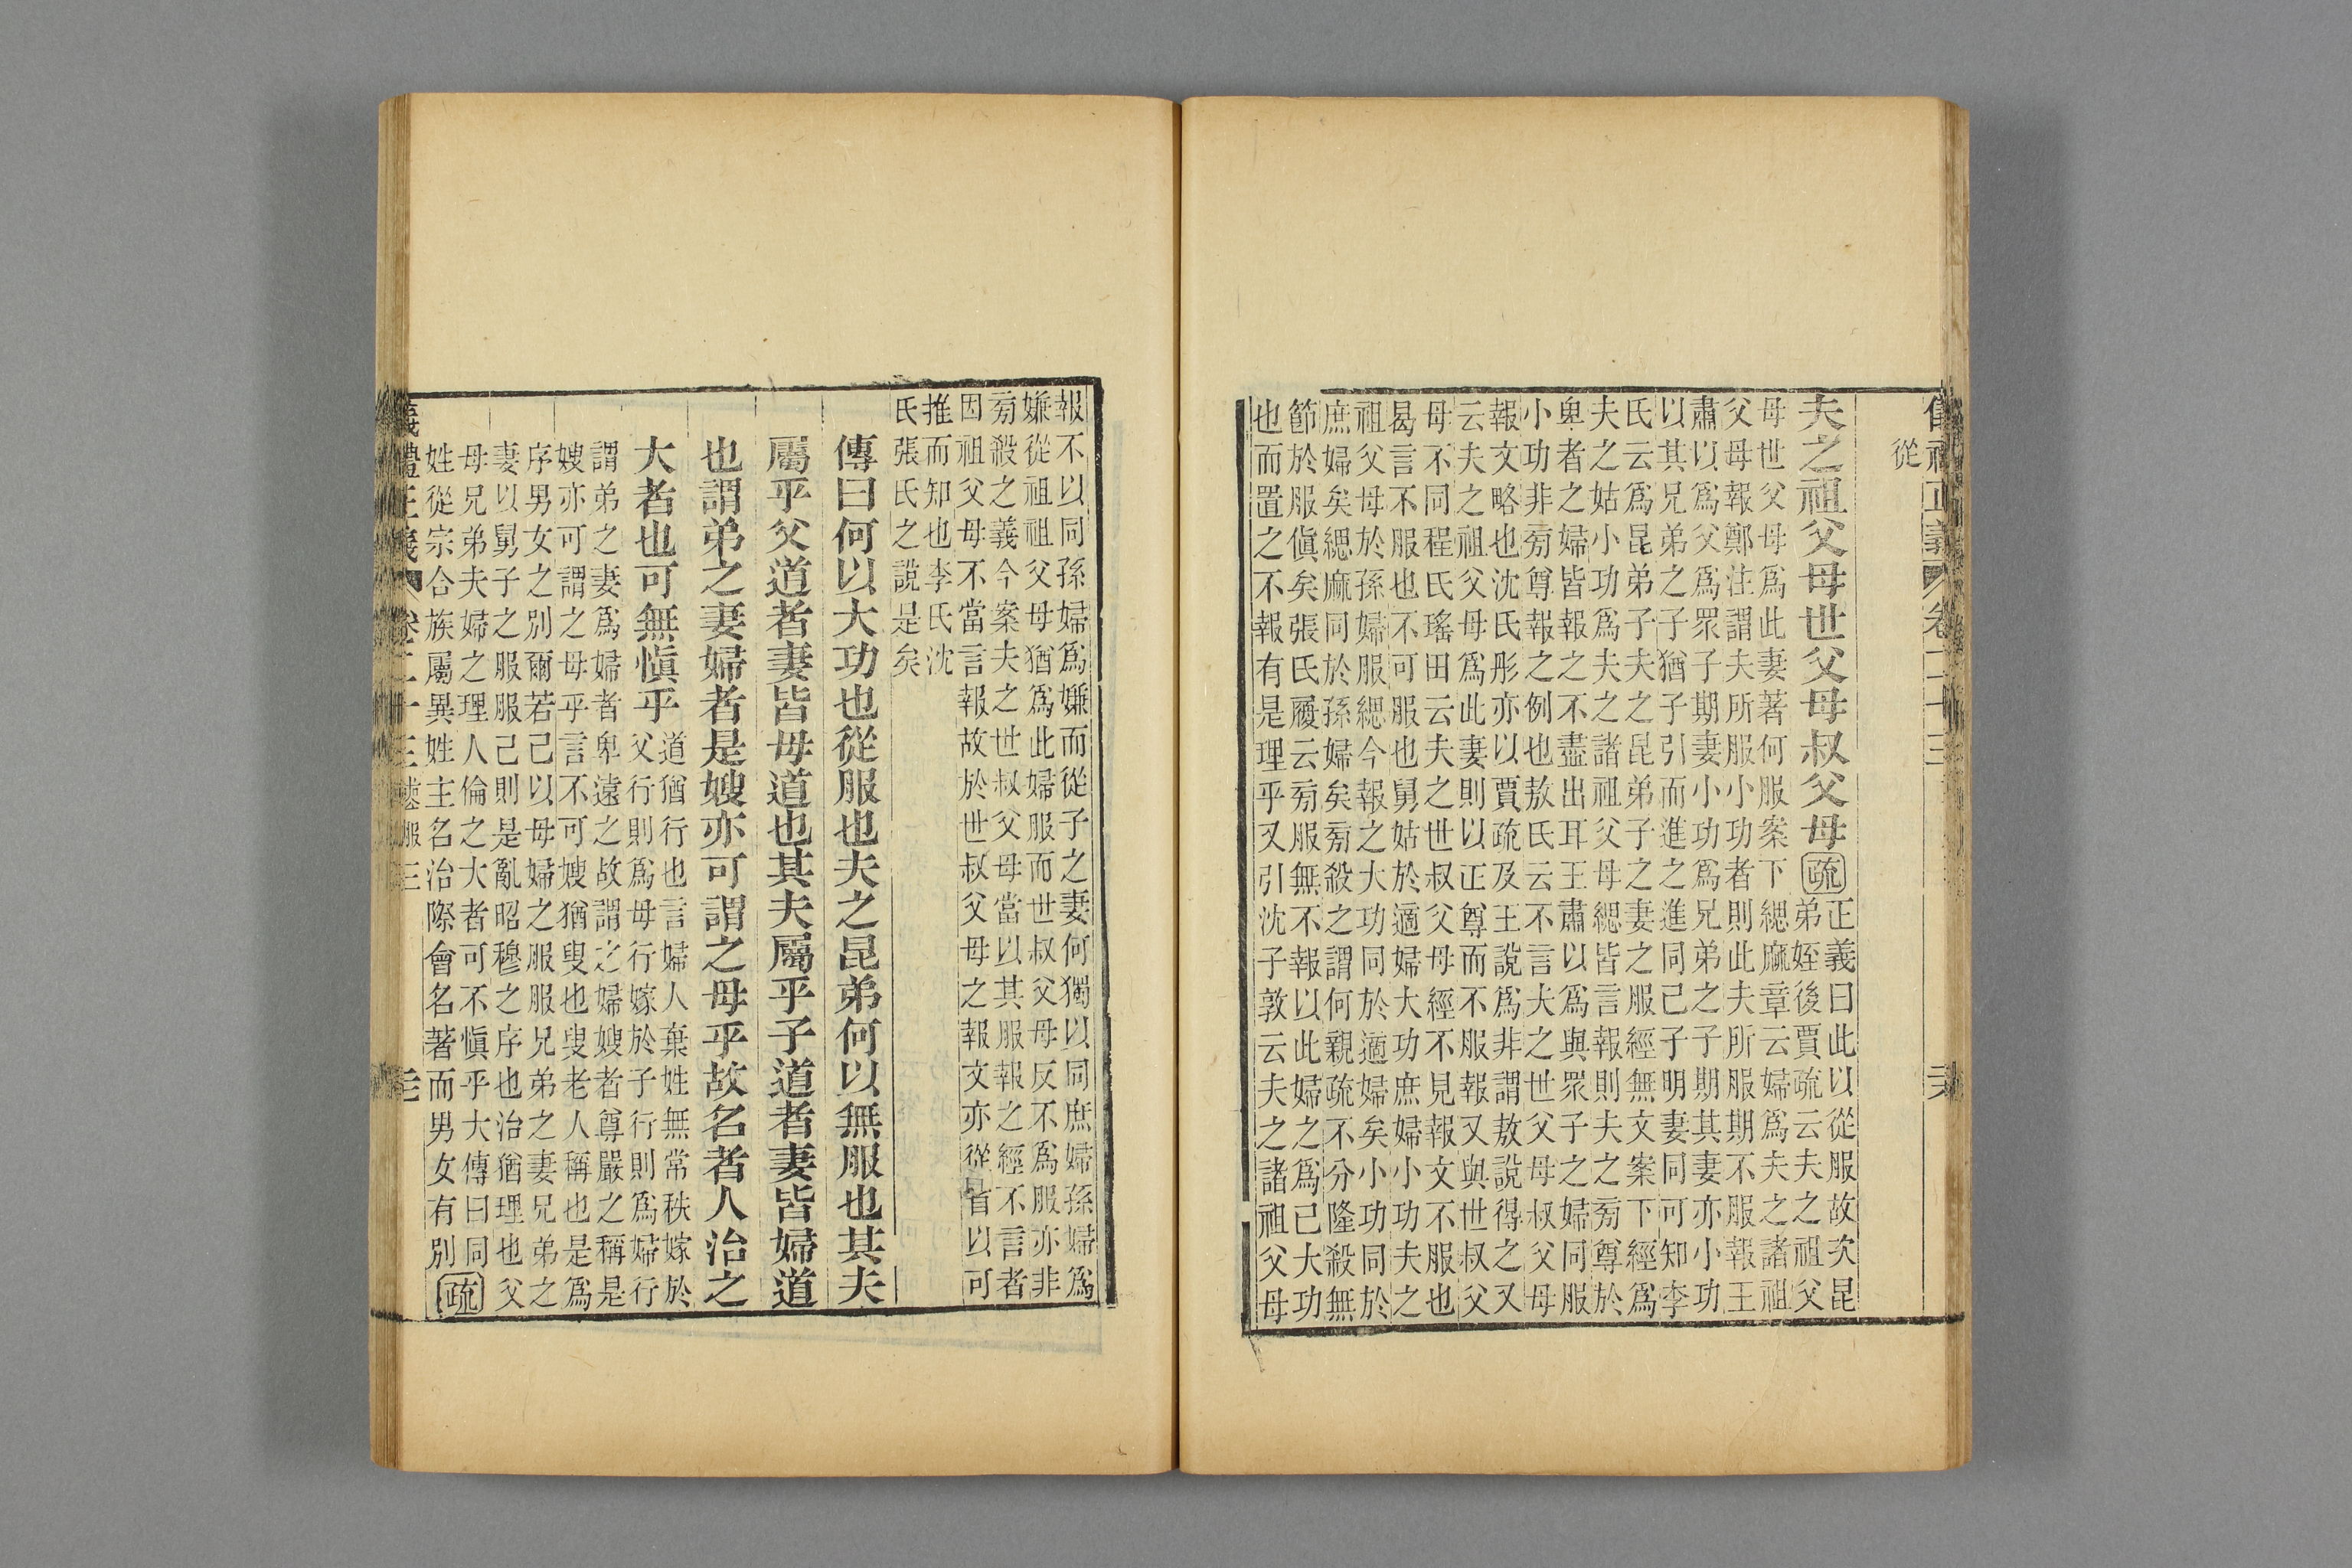 儀禮正義 卷二十三
從
夫之祖父母世父母叔父母疏
正義曰此以從服故次昆
弟姪後賈疏云夫之祖父
母世父母爲此妻著何服案下緦麻章云婦爲夫之諸祖
父母報鄭注謂夫所服小功者則此夫所服期不服報王
肅以爲父爲眾子期妻小功爲兄弟之子期其妻亦小功
以其兄弟之子猶子引而進之進同己子明妻同可知李
氏云爲昆弟子夫之昆弟子之妻之服經無文案下經爲
夫之姑小功爲夫之諸祖父母緦皆言報則夫之旁尊於
卑者之婦皆報之不盡出耳王肅以爲與眾子之婦同服
小功非旁尊報之例也敖氏云不言夫之世父母叔父母
報文略也沈氏彤亦以賈疏及王說爲非謂敖說得之又
云夫之祖父母爲此妻則以正尊而不服報又與世叔父
母不同程氏瑤田云夫之世叔父母經不見報文不服也
曷言不服也不可服也舅姑於適婦大功庶婦小功夫之
祖父母於孫婦服緦今報之大功同於適婦矣小功同於
庶婦矣緦麻同於孫婦矣旁殺之謂何親疏不分隆殺無
節於服傎矣張氏履云旁服無不報以此婦之爲已大功
也而置之不報有是理乎又引沈子敦云夫之諸祖父母
報不以同孫婦爲嫌而從子之妻何獨以同庶婦孫婦爲
嫌從祖祖父母猶爲此婦服而世叔父母反不爲服亦非
旁殺之義今案夫之世叔父母當以其服報之經不言者
因祖父母不當言報故於世叔父母之報文亦從省以可
推而知也李氏沈
氏張氏之說是矣
傳曰何以大功也從服也夫之昆弟何以無服也其夫
屬乎父道者妻皆母道也其夫屬乎子道者妻皆婦道
也謂弟之妻婦者是嫂亦可謂之母乎故名者人治之
大者也可無愼乎
道猶行也言婦人棄姓無常秩嫁於
父行則爲母行嫁於子行則爲婦行
謂弟之妻爲婦者卑遠之故謂之婦嫂者尊嚴之稱是
嫂亦可謂之母乎言不可嫂猶叟也叟老人稱也是爲
序男女之別爾若己以母婦之服服兄弟之妻兄弟之
妻以舅子之服服己則是亂昭穆之序也治猶理也父
母兄弟夫婦之理人倫之大者可不愼乎大傳曰同
姓從宗合族屬異姓主名治際會名著而男女有別疏
儀禮正義 卷二十三喪服三